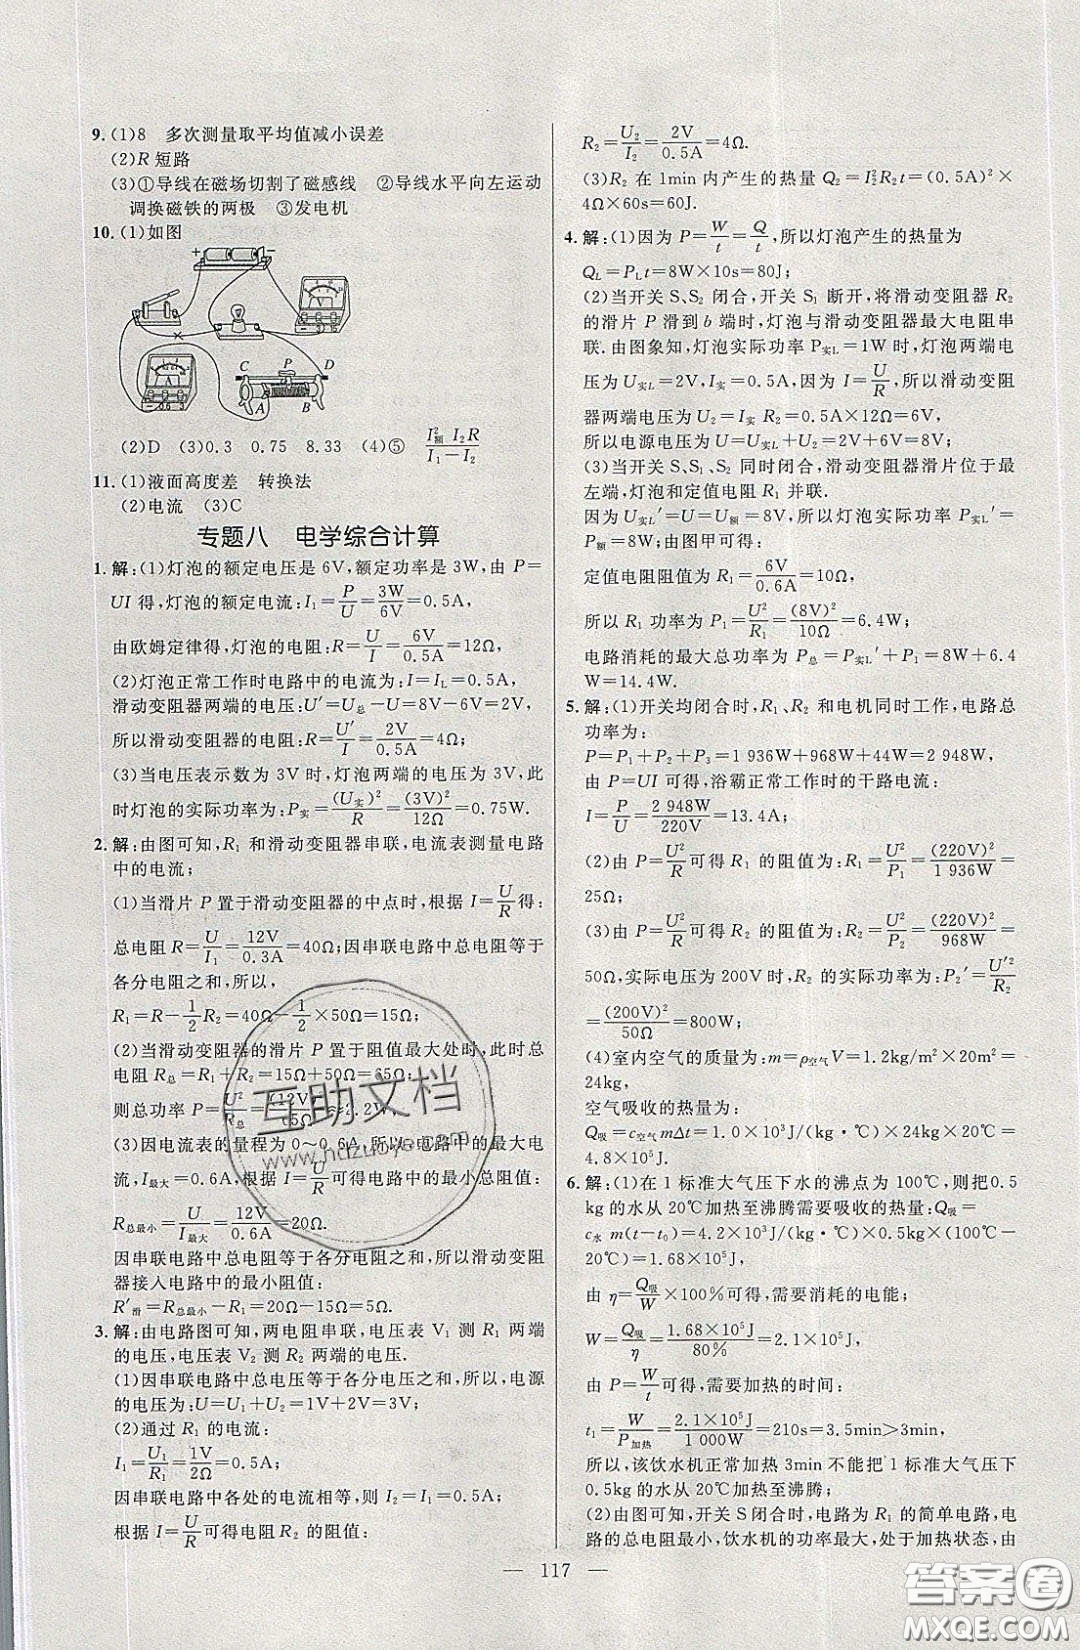 9. (1)8 多次测量取平均值减小误差
(2)R 短路
(3)①导线在磁场切割了磁感线 ②导线水平向左运动
调换磁铁的两极 ③发电机
10. (1)如图
+ −
C P D
A B
(2)D (3)0.3 0.75 8.33 (4)⑤ I²额 I₂R/(I₁−I₂)
11. (1)液面高度差 转换法
(2)电流 (3)C
专题八 电学综合计算
1. 解:(1)灯泡的额定电压是 6V,额定功率是 3W,由 P=
UI 得,灯泡的额定电流:I₁=P/U=3W/6V=0.5A,
由欧姆定律得,灯泡的电阻:R=U/I=6V/0.5A=12Ω.
(2)灯泡正常工作时电路中的电流为:I=I_L=0.5A,
滑动变阻器两端的电压:U′=U总−U=8V−6V=2V,
所以滑动变阻器的电阻:R=U′/I=2V/0.5A=4Ω.
(3)当电压表示数为 3V 时,灯泡两端的电压为 3V,此
时灯泡的实际功率为:P实=(U实)²/R=(3V)²/12Ω=0.75W.
2. 解:由图可知,R₁ 和滑动变阻器串联,电流表测量电路
中的电流;
(1)当滑片 P 置于滑动变阻器的中点时,根据 I=U/R得:
总电阻 R=U/I₁=12V/0.3A=40Ω;因串联电路中总电阻等于
各分电阻之和,所以,
R₁=R−1/2R₂=40Ω−1/2×50Ω=15Ω;
(2)当滑动变阻器的滑片 P 置于阻值最大处时,此时总
电阻 R总=R₁+R₂=15Ω+50Ω=65Ω
则总功率 P=U²/R总=(12V)²/65Ω≈2.2W.
(3)因电流表的量程为 0～0.6A,所以,电路中的最大电
流,I最大=0.6A,根据 I=U/R可得电路中的最小总阻值:
R总最小=U/I最大=12V/0.6A=20Ω.
因串联电路中总电阻等于各分电阻之和,所以滑动变阻
器接入电路中的最小阻值:
R′滑=R总最小−R₁=20Ω−15Ω=5Ω.
3. 解:由电路图可知,两电阻串联,电压表 V₁ 测 R₁ 两端
的电压,电压表 V₂ 测 R₂ 两端的电压.
(1)因串联电路中总电压等于各分电压之和,所以,电源
的电压为:U=U₁+U₂=1V+2V=3V;
(2)通过 R₁ 的电流:
I₁=U₁/R₁=1V/2Ω=0.5A;
因串联电路中各处的电流相等,则 I₂=I₁=0.5A;
根据 I=U/R可得电阻 R₂ 的阻值:
R₂=U₂/I₂=2V/0.5A=4Ω;
(3)R₂ 在 1min 内产生的热量 Q₂=I₂²R₂t=(0.5A)²×
4Ω×60s=60J.
4. 解:(1)因为 P=W/t=Q/t,所以灯泡产生的热量为
Q_L=P_Lt=8W×10s=80J;
(2)当开关 S、S₂ 闭合,开关 S₁ 断开,将滑动变阻器 R₂
的滑片 P 滑到 b 端时,灯泡与滑动变阻器最大电阻串
联.由图象知,灯泡实际功率 P实L=1W 时,灯泡两端电
压为 U实L=2V,I实=0.5A,因为 I=U/R,所以滑动变阻
器两端电压为 U₂=I实 R₂=0.5A×12Ω=6V,
所以电源电压为 U=U实L+U₂=2V+6V=8V;
(3)当开关 S、S₁、S₂ 同时闭合,滑动变阻器滑片位于最
左端,灯泡和定值电阻 R₁ 并联.
因为 U实L′=U=U额=8V,所以灯泡实际功率 P实L′=
P额=8W;由图甲可得:
定值电阻阻值为 R₁=6V/0.6A=10Ω,
所以 R₁ 功率为 P₁=U²/R₁=(8V)²/10Ω=6.4W,
电路消耗的最大总功率为 P总=P实L′+P₁=8W+6.4
W=14.4W.
5. 解:(1)开关均闭合时,R₁、R₂ 和电机同时工作,电路总
功率为:
P=P₁+P₂+P₃=1 936W+968W+44W=2 948W,
由 P=UI 可得,浴霸正常工作时的干路电流:
I=P/U=2 948W/220V=13.4A;
(2)由 P=U²/R可得 R₁ 的阻值为:R₁=U²/P₁=(220V)²/1 936W=
25Ω;
(3)由 P=U²/R可得 R₂ 的阻值为:R₂=U²/P₂=(220V)²/968W=
50Ω,实际电压为 200V 时,R₂ 的实际功率为:P₂′=U′²/R₂
=(200V)²/50Ω=800W;
(4)室内空气的质量为:m=ρ空气V=1.2kg/m²×20m²=
24kg,
空气吸收的热量为:
Q吸=c空气 mΔt=1.0×10³J/(kg·℃)×24kg×20℃=
4.8×10⁵J.
6. 解:(1)在 1 标准大气压下水的沸点为 100℃,则把0.5
kg的水从 20℃加热至沸腾需要吸收的热量:Q吸=
c水 m(t−t₀)=4.2×10³J/(kg·℃)×0.5kg×(100℃−
20℃)=1.68×10⁵J,
由 η=Q吸/W×100%可得,需要消耗的电能;
W=Q吸/η=1.68×10⁵J/80%=2.1×10⁵J,
由 P=W/t可得,需要加热的时间:
t₁=W/P加热=2.1×10⁵J/1 000W=210s=3.5min>3min,
所以,该饮水机正常加热 3min 不能把 1 标准大气压下
0.5kg 的水从 20℃加热至沸腾;
(2)由图可知,开关 S 闭合时,电路为 R₁ 的简单电路,电
路的总电阻最小,饮水机的功率最大,处于加热状态,由
— 117 —
互助文档
www.huzuoye.com
答案圈
MXQE.COM